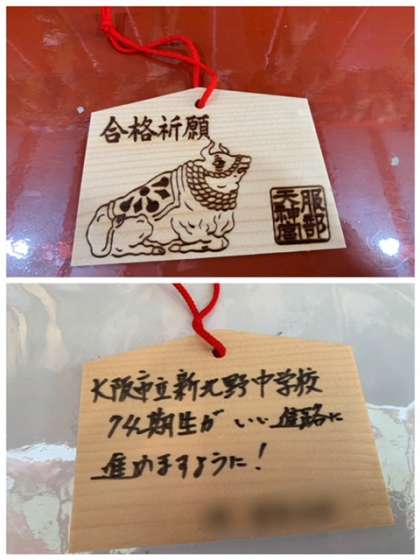 合格祈願
服部
天神宮
大阪市立新北野中学校
74期生が いい進路に
進めますように!